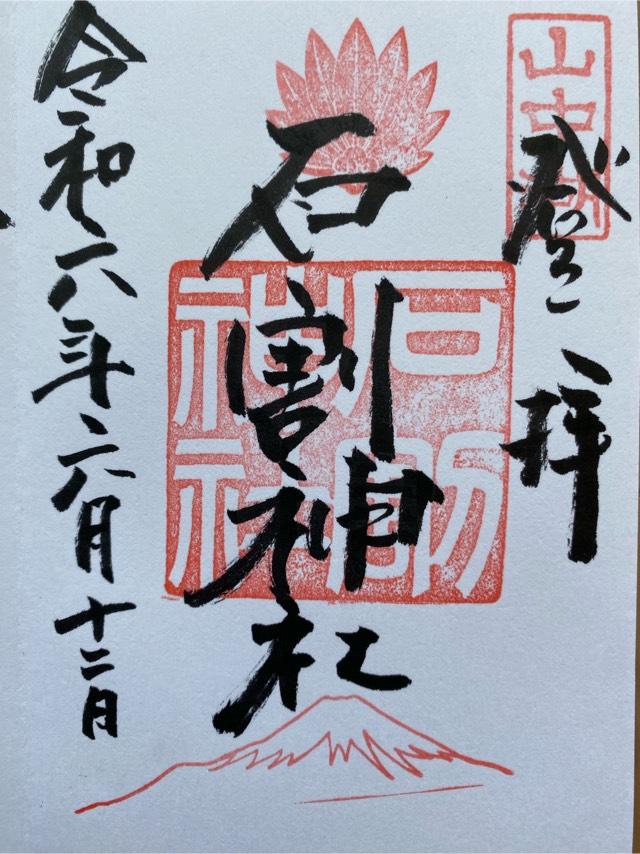 山中湖
登拝
石割神社
石割神社
令和六年六月十二日